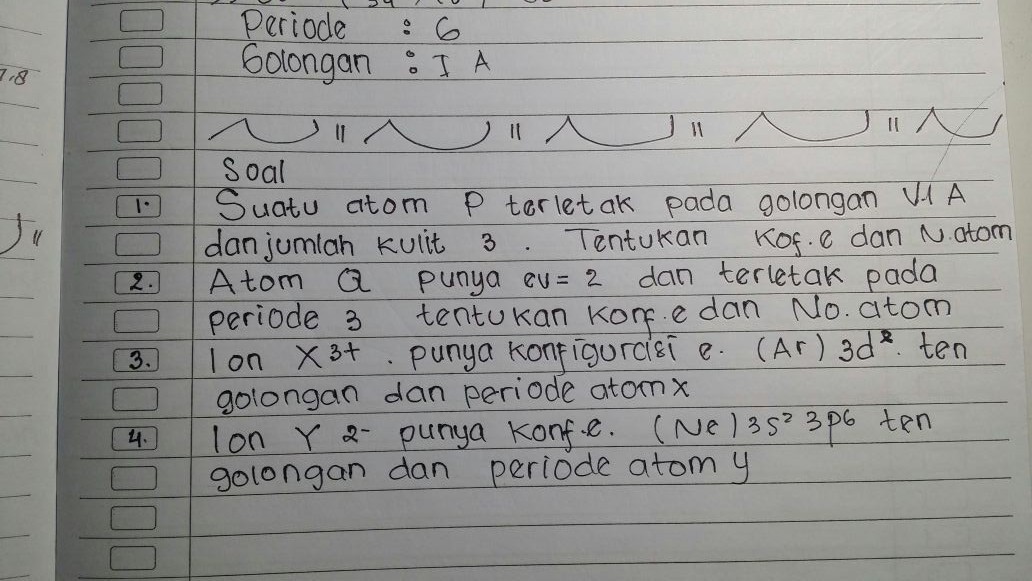 Periode : 6
Golongan : I A
7.8
Soal
1. Suatu atom P terletak pada golongan VI A
dan jumlah kulit 3 . Tentukan Kof.e dan N.atom
2. Atom Q punya ev = 2 dan terletak pada
periode 3 tentukan konf.e dan No. atom
3. Ion X 3+ . punya konfigurasi e. (Ar) 3d². ten
golongan dan periode atom x
4. Ion Y 2- punya konf.e. (Ne) 3s² 3p6 ten
golongan dan periode atom y